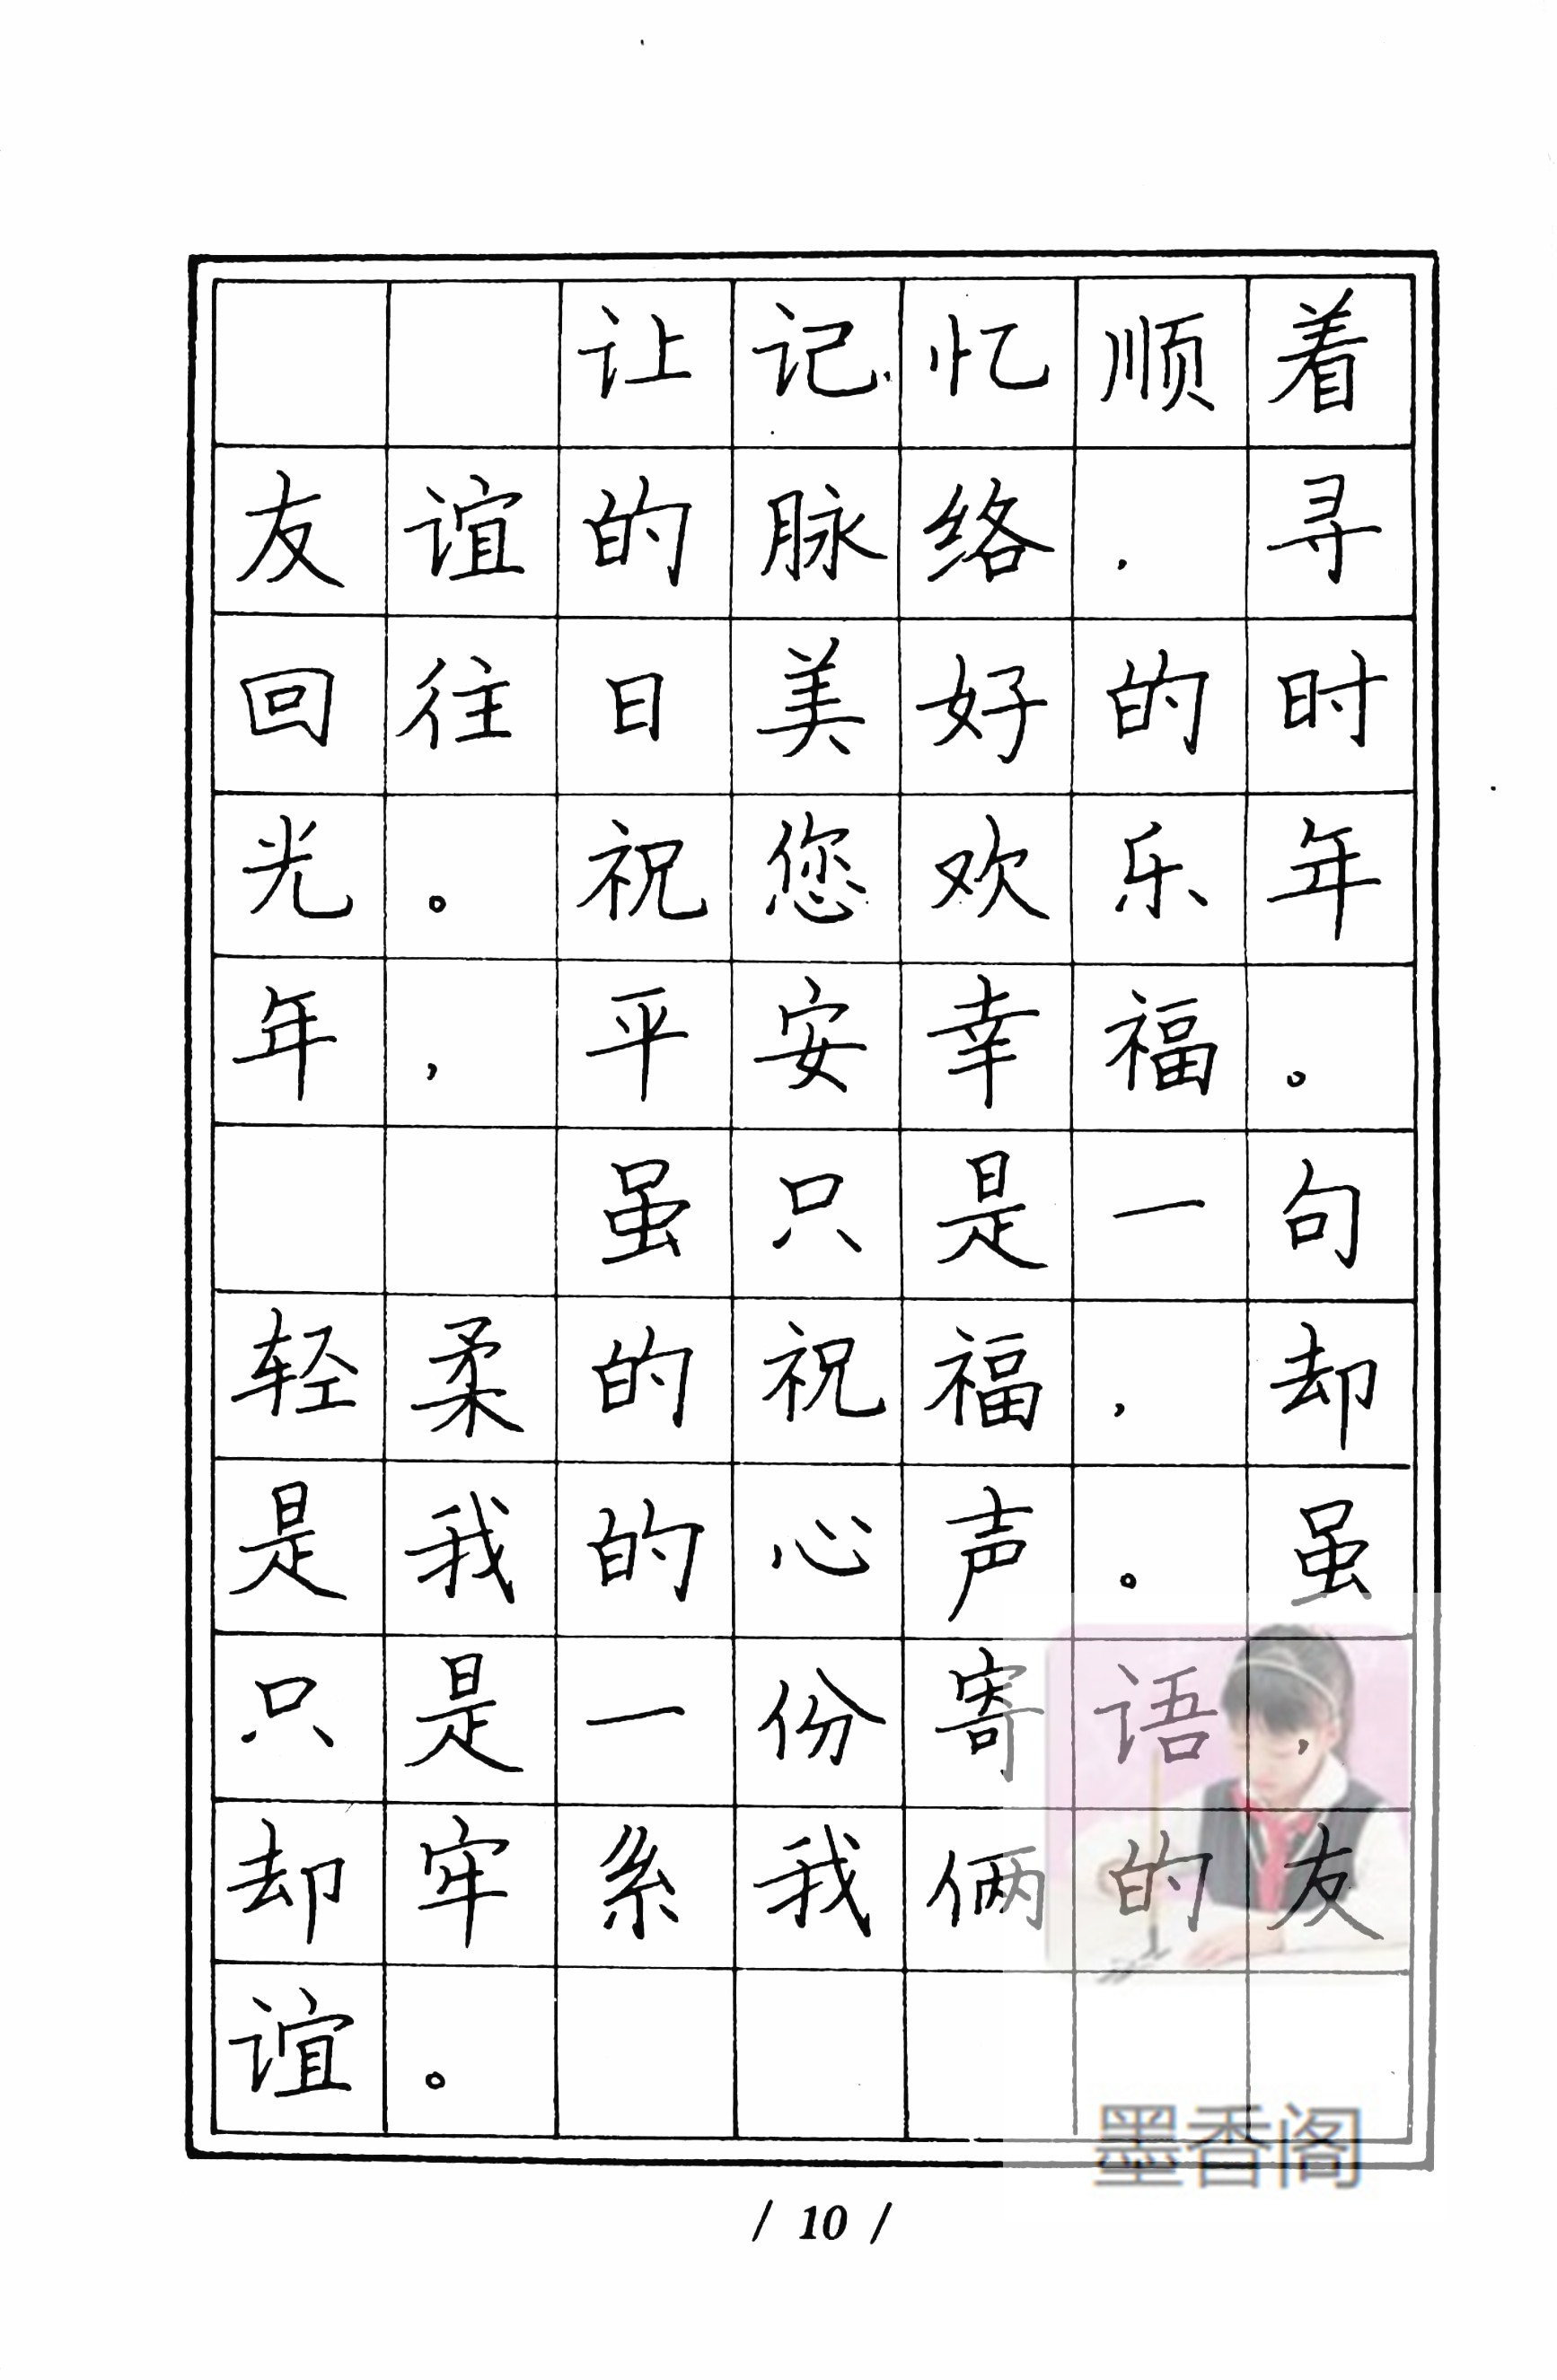 让记忆顺着
友谊的脉络，寻
回往日美好的时
光。祝您欢乐年
年，平安幸福。
虽只是一句
轻柔的祝福，却
是我的心声。虽
只是一份寄语，
却牢系我俩的友
谊。
墨香阁
/ 10 /